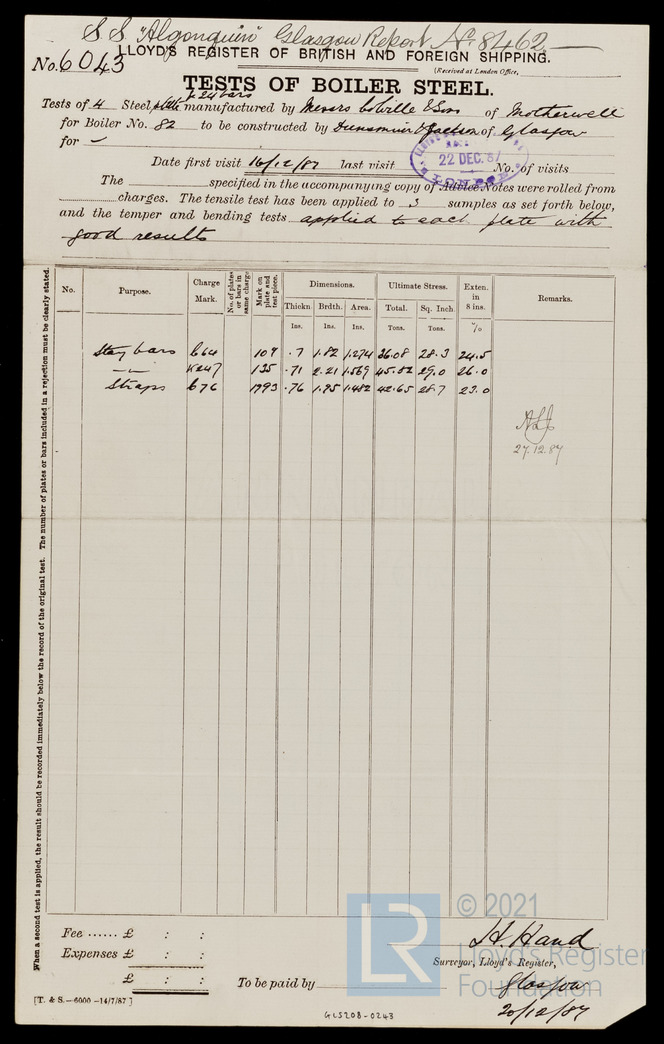 S S "Algonquin" Glasgow Report No. 8462
No. 6043
LLOYD'S REGISTER OF BRITISH AND FOREIGN SHIPPING.
(Received at London Office,
TESTS OF BOILER STEEL.
& 24 bars
Tests of 4 Steel plate manufactured by Messrs Colville & Sons of Motherwell
for Boiler No. 82 to be constructed by Dunsmuir & Jackson of Glasgow
for —
22 DEC. 87
Date first visit 16/12/87 last visit No. of visits
The specified in the accompanying copy of Advice Notes were rolled from
charges. The tensile test has been applied to 3 samples as set forth below,
and the temper and bending tests applied to each plate with
good results
When a second test is applied, the result should be recorded immediately below the record of the original test. The number of plates or bars included in a rejection must be clearly stated.
No. Purpose. Charge Mark. No. of plates or bars in same charge. Mark on plate and test piece. Dimensions. Ultimate Stress. Exten. in 8 ins. Remarks.
Thickn Brdth. Area. Total. Sq. Inch.
Ins. Ins. Ins. Tons. Tons. %
Stay bars 664 109 .7 1.82 1.274 36.08 28.3 24.5
—"— 135 .71 2.21 1.569 45.52 29.0 26.0
Straps 676 1793 .76 1.95 1.482 42.65 28.7 23.0
27.12.87
Fee ...... £ : :
Expenses £ : :
£ : :
H. Hand
Surveyor, Lloyd's Register,
To be paid by Glasgow
20/12/87
[T. & S.—6000—14/7/87]
GLS208-0243
LR
© 2021
Lloyd's Register
Foundation